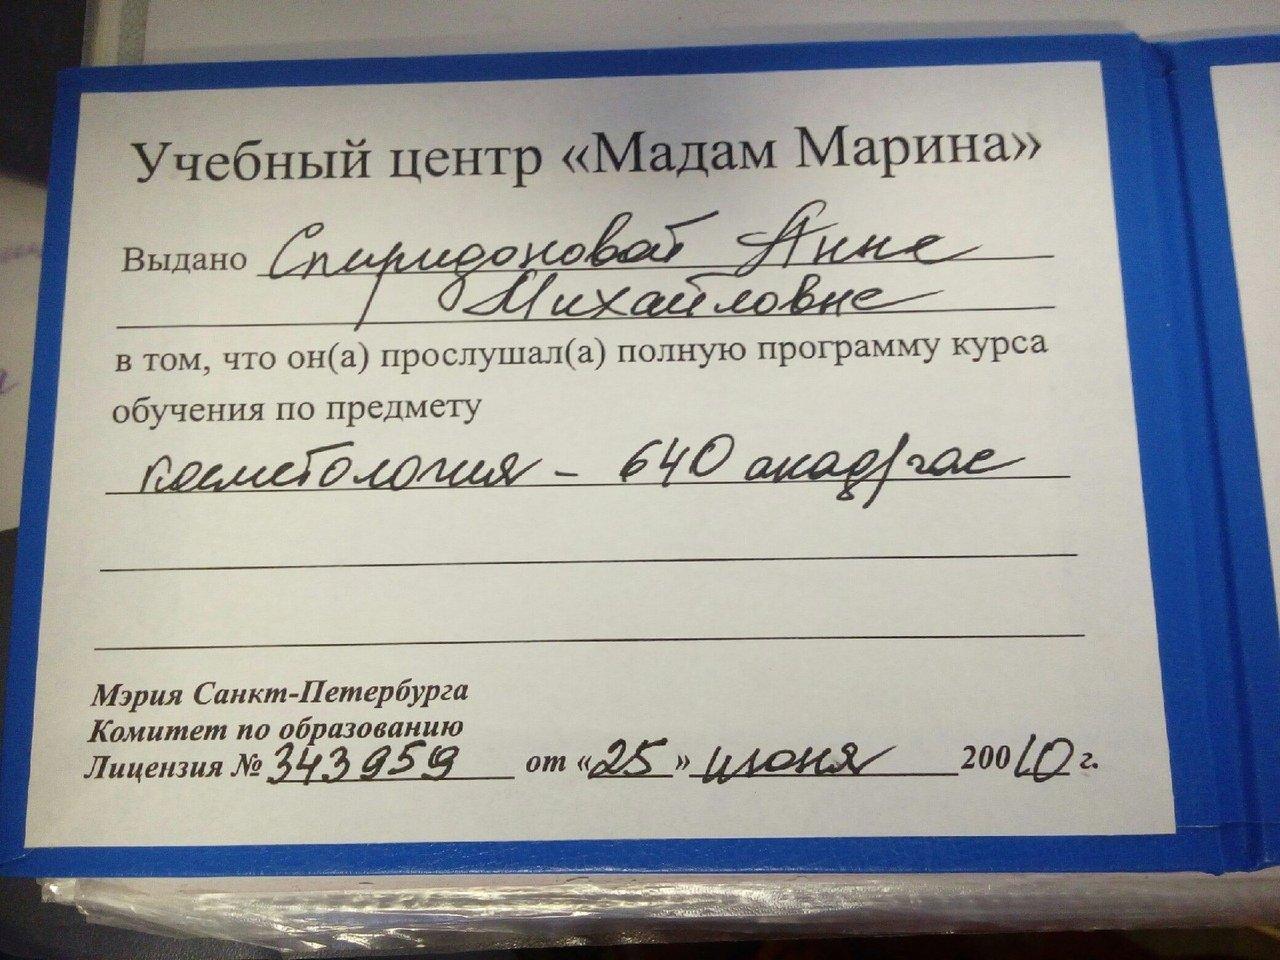 Учебный центр «Мадам Марина»
Выдано Спиридоновой Анне
Михайловне
в том, что он(а) прослушал(а) полную программу курса
обучения по предмету
косметология – 640 акад/час
Мэрия Санкт-Петербурга
Комитет по образованию
Лицензия № 343959 от «25» июня 20010 г.